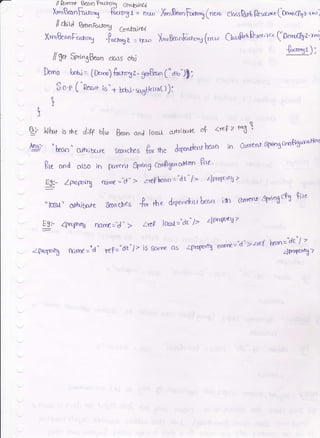 // Parent Bean Factory Container
XmlBeanFactory factory1 = new XmlBeanFactory(new ClassPathResource("DemoCfg1.xml
// child BeanFactory Container
XmlBeanFactory factory2 = new XmlBeanFactory(new ClassPathResource("DemoCfg2.xml
factory1);
// get SpringBean class obj
Demo bobj = (Demo)factory2.getBean("db");
S.o.p("Result is" + bobj.sayHello());
}
}
Q:- What is the diff b/w Bean and local attribute of <ref> tag?
Ans:- "bean" attribute searches for the dependent bean in current Spring Configuration
file and also in parent Spring Configuration file.
Eg:- <property name="d"> <ref bean="dt"/> </property>
"local" attribute Searches for the dependent bean in current Spring cfg file
Eg:- <property name="d"> <ref local="dt"/> </property>
<property name="d" ref="dt"/> is same as <property name="d"><ref bean="dt"/>
</property>